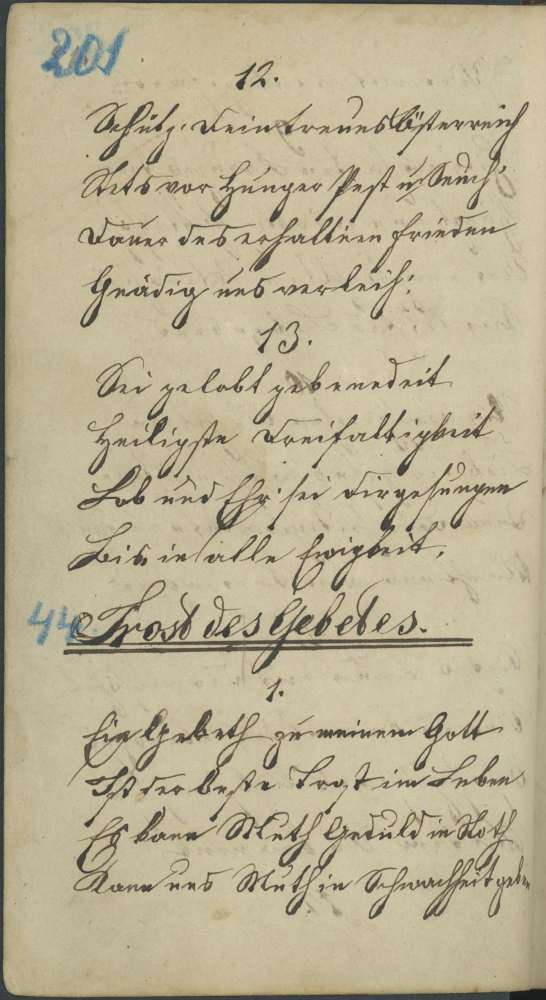 201
12.
Schütz' dein treues Österreich
Stets vor Hunger Pest u. Seuch'
Dauer des erhaltnen Frieden
Gnädig uns verleih!
13.
Sei gelobt gebenedeit
Heiligste Dreifaltigkeit
Lob und Ehr' sei dir gesungen
Bis in alle Ewigkeit.
44. Trost des Gebetes.
1.
Ein Gebeth zu meinem Gott
Ist der beste Trost im Leben
Es kann Muth Geduld in Noth
Kann uns Muth in Schwachheit geben